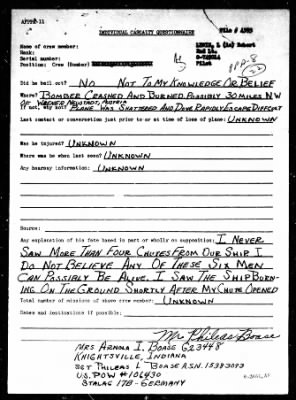 AFPPA-11
INDIVIDUAL CASUALTY QUESTIONNAIRE
Name of crew member:
Rank:
Serial number:
Position: Crew (Bomber)
2nd Lt.
Pilot
Did he bail out? NO NOT TO MY KNOWLEDGE OR BELIEF
Where? BOMBER CRASHED AND BURNED POSSIBLY 30 MILES NW
OF WIENER NEUSTADT, AUSTRIA
If not, why not? PLANE WAS SHATTERED AND DOVE RAPIDLY ESCAPE DIFFICULT
Last contact or conversation just prior to or at time of loss of plane: UNKNOWN
Was he injured? UNKNOWN
Where was he when last seen? UNKNOWN
Any hearsay information: UNKNOWN
Source:
Any explanation of his fate based in part or wholly on supposition: I NEVER
SAW MORE THAN FOUR CHUTES FROM OUR SHIP I
DO NOT BELIEVE ANY OF THESE SIX MEN
CAN POSSIBLY BE ALIVE. I SAW THE SHIP BURN-
ING ON THE GROUND SHORTLY AFTER MY CHUTE OPENED
Total number of missions of above crew member: UNKNOWN
Dates and destinations if possible:
Mr Phileas Boase
MRS ARNOLA I. BOASE 623448
KNIGHTSVILLE, INDIANA
SGT PHILEAS L BOASE A.S.N. 15383093
U.S. POW # 106430
STALAG 17B - GERMANY